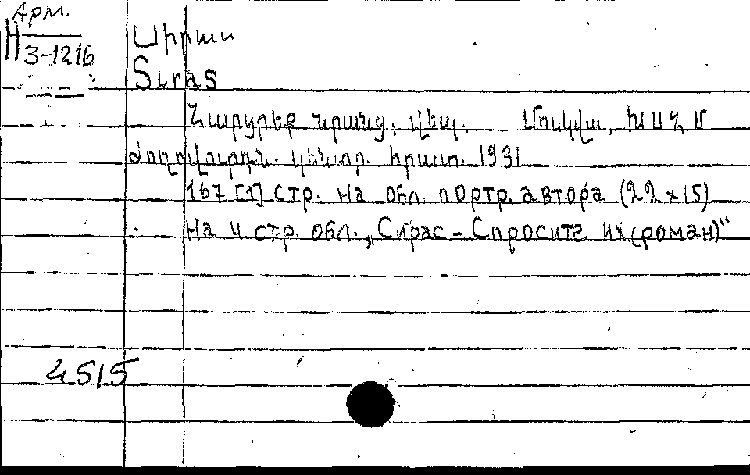 Арм.
Н 3-1216
Սիրաս
Siras
Հարցրեք նրանց. վեպ. Մոսկվա, ԽՍՀՄ
ժողովուրդն. կենտր. հրատ. 1931
167 [1] стр. на обл. портр. автора (22 x 15)
На 4 стр. обл. „Сирас – Спросите их (роман)"
4515